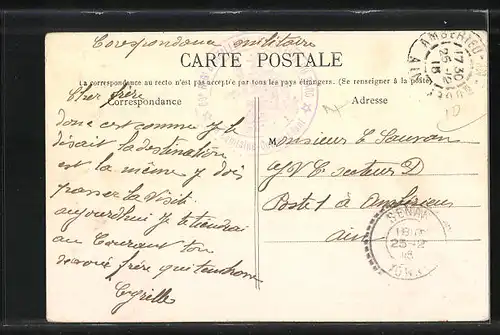 Corespondance militaire
CARTE POSTALE
La correspondance au recto n'est pas acceptée par tous les pays étrangers. (Se renseigner à la poste)
Correspondance
Adresse
Cher frère
donc est comme y l
désait la destinatière
est la même y dois
passer la Visite
aujourdhui Je te tiendrai
au Courant ton
frère qui
Cyrille
Monsieur E
G V C secteur D
Poste 1 à Ambérieu
Ain
AMBERIEU
17 30
AIN
SENAN
23-12
YONNE